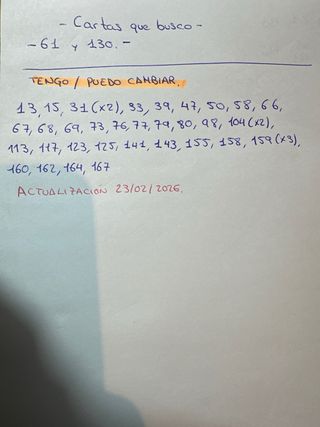 - Cartas que busco -
- 61 y 130. -
TENGO / PUEDO CAMBIAR.
13, 15, 31 (x2), 33, 39, 47, 50, 58, 66,
67, 68, 69, 73, 76, 77, 79, 80, 98, 104 (x2),
113, 117, 123, 125, 141, 143, 155, 158, 159 (x3),
160, 162, 164, 167
ACTUALIZACIÓN 23/02/2026.